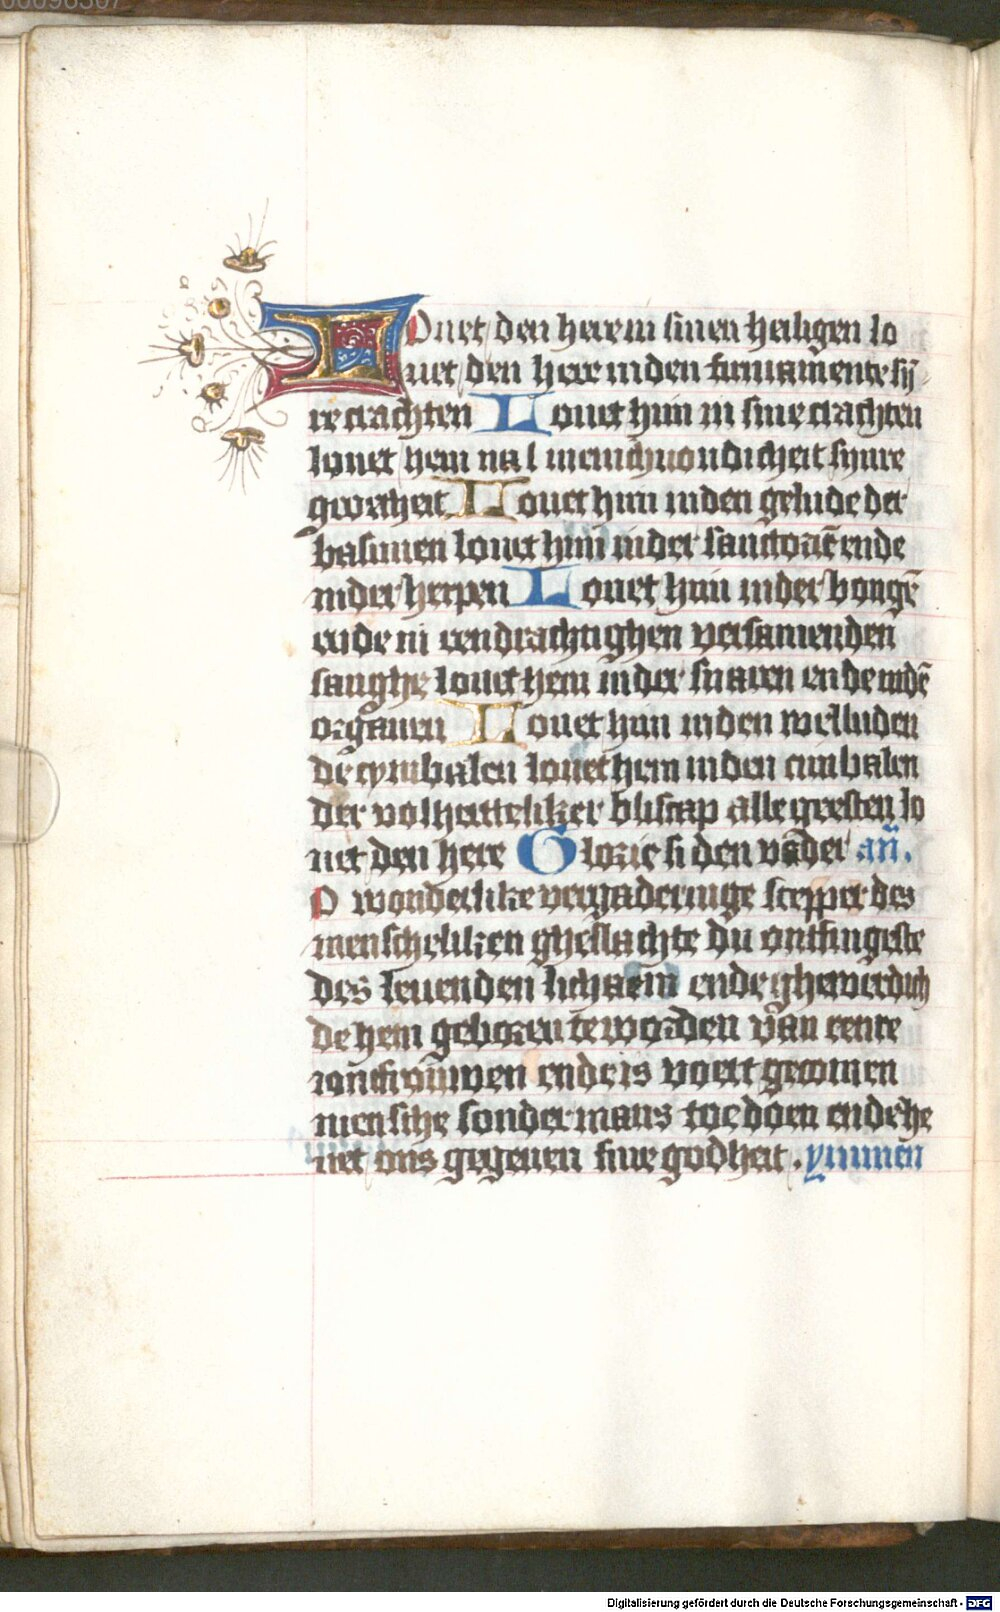 00096307
LOuet den here in sinen heiligen lo
uet den here in den firmamente sij
re crachten Louet him in sine crachten
louet hem na l menichuoudicheit synre
grootheit Louet him in den gelude der
basunen louet him in der sauctorē ende
in der herpen Louet him in der bongē
ende in eendrachtighen versamenden
sanghe louet hem in der snaren ende in dē
organen Louet him in den welluden
de cymbalen louet hem in den cimbalen
der volherteliker bliscap alle geesten lo
uet den here Glorie si den vader an̄.
O wonderlike vergaderinge scepper des
menscheliken gheslachte du ontfingeste
des leuenden lichaem ende ghewerdich
de hem geboren te worden van eente
ioncfrouwen ende is voert gecomen
mensche sonder mans toe doen ende he
uet ons gegeuen sine godheit . ymmen
Digitalisierung gefördert durch die Deutsche Forschungsgemeinschaft - DFG